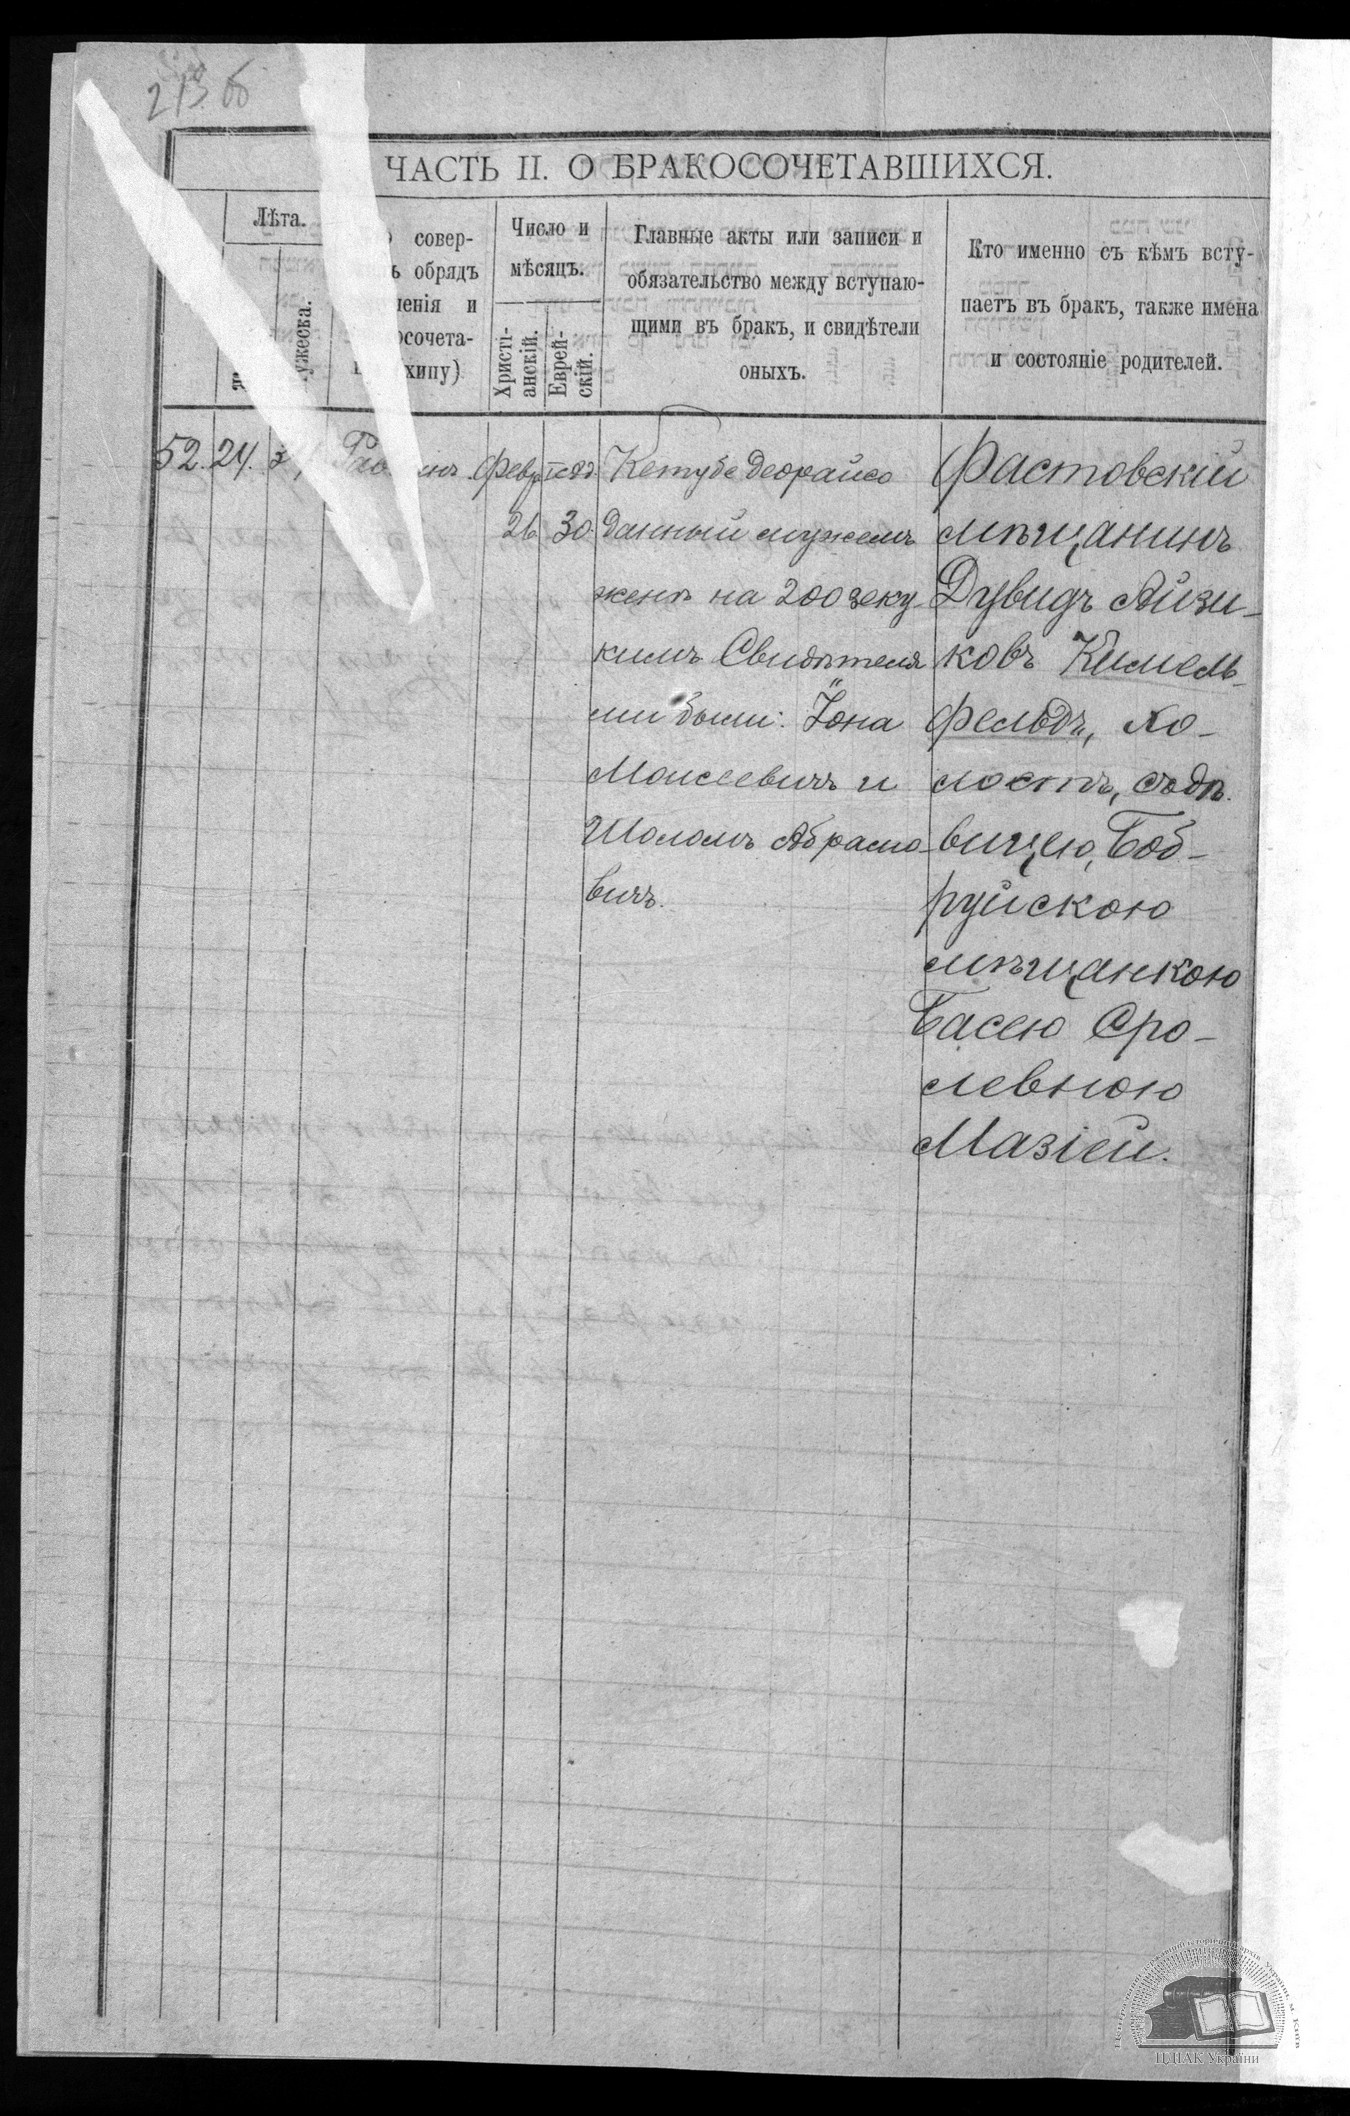 213 об
ЧАСТЬ II. О БРАКОСОЧЕТАВШИХСЯ.
Лѣта.
ужеска.
совер-
ь обрядъ
ченія и
осочета-
хипу)
Число и
мѣсяцъ.
Христі-
анскій.
Еврей-
скій.
Главные акты или записи и
обязательство между вступаю-
щими въ бракъ, и свидѣтели
оныхъ.
Кто именно съ кѣмъ всту-
паетъ въ бракъ, также имена
и состояніе родителей.
52. 24.
Февр.
26 30
Кетубе деорайсо
данный мужемъ
женѣ на 200 зеку
кимъ Свидѣтеля
ми были: Іона
Моисеевичъ и
Шоломъ Абрамо-
вичъ.
Фастовскій
мѣщанинъ
Дувидъ Айзи-
ковъ Кимель-
фельдъ, хо-
лостъ, съ дѣ-
вицею, Боб-
руйскою
мѣщанкою
Басею Сро-
левною
Мазіей.
ЦДІАК України